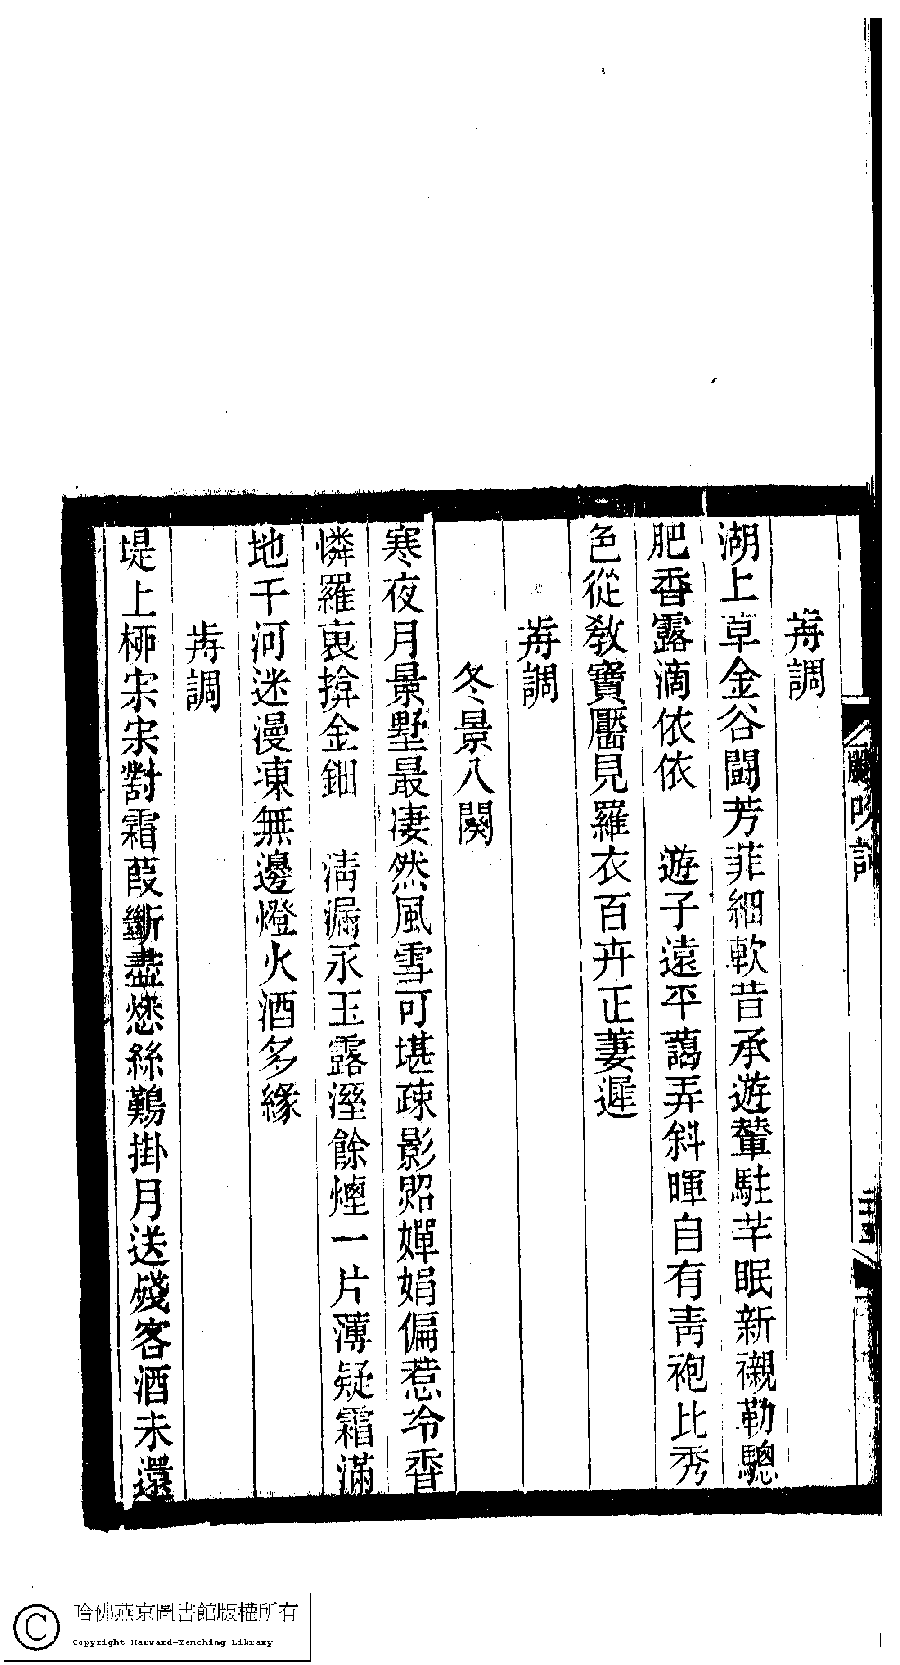 前調
湖上草金谷鬪芳菲細軟昔承遊輦駐芊眠新襯勒驄
肥香露滴依依　遊子遠平藹弄斜暉自有靑袍比秀
色從教寶靨見羅衣百卉正萋遲
前調
冬景八闋
寒夜月景墅最凄然風雪可堪疎影照嬋娟偏惹冷香
憐羅裏揜金鈿　淸漏永玉露溼餘煙一片薄疑霜滿
地千河迷漫凍無邊燈火酒多緣
前調
堤上柳宋宋對霜葭斷盡愁絲鷄掛月送殘客酒未還
哈佛燕京圖書館版權所有
Copyright Harvard-Yenching Library